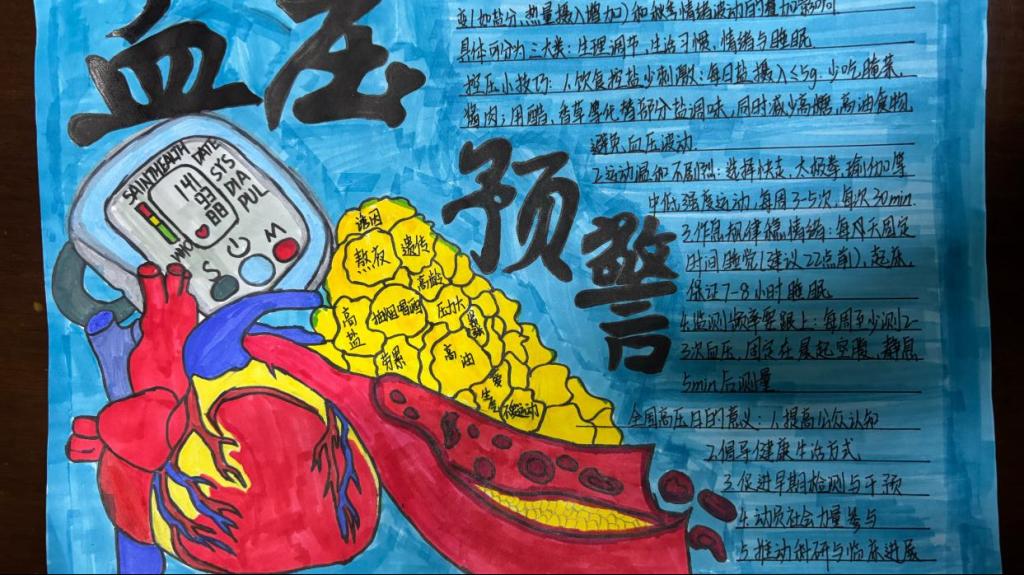 血压
预警
SAINTHEALTH
DATE
141
93
88
SYS
DIA
PUL
WHO
S
M
诱因
熬夜
遗传
高龄
高盐
抽烟喝酒
压力大
劳累
高油
爱生气
不运动
变(如盐分,热量摄入增加)和秋冬情绪波动的叠加影响
具体可分为三大类:生理调节,生活习惯,情绪与睡眠
控压小技巧:1.饮食控盐少刺激:每日盐摄入≤5g,少吃腌菜、
腊肉;用醋、香草等代替部分盐调味,同时减少高糖,高油食物
避免血压波动.
2.运动温和不剧烈:选择快走、太极拳、瑜伽等
中低强度运动,每周3-5次,每次30min.
3.作息规律稳情绪:每天固定
时间睡觉(建议22点前)、起床,
保证7-8小时睡眠
4.监测频率要跟上:每周至少测2-
3次血压,固定在晨起空腹,静息
5min后测量
全国高压日的意义:1.提高公众认知
2.倡导健康生活方式
3.促进早期检测与干预
4.动员社会力量参与
5.推动科研与临床进展